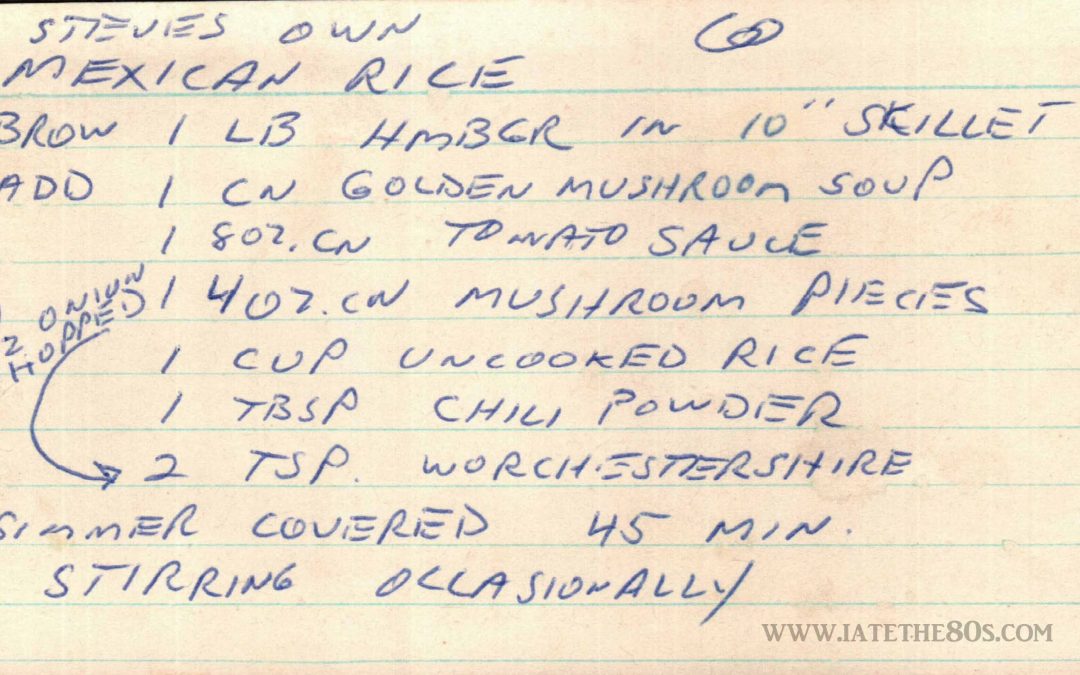 STEVES OWN
MEXICAN RICE
BROW 1 LB HMBGR IN 10" SKILLET
ADD 1 CN GOLDEN MUSHROOM SOUP
1 8OZ. CN TOMATO SAUCE
1 4OZ. CN MUSHROOM PIECES
2 ONION
HOPPED
1 CUP UNCOOKED RICE
1 TBSP CHILI POWDER
2 TSP. WORCHESTERSHIRE
SIMMER COVERED 45 MIN.
STIRRING OCCASIONALLY
WWW.IATETHE80S.COM